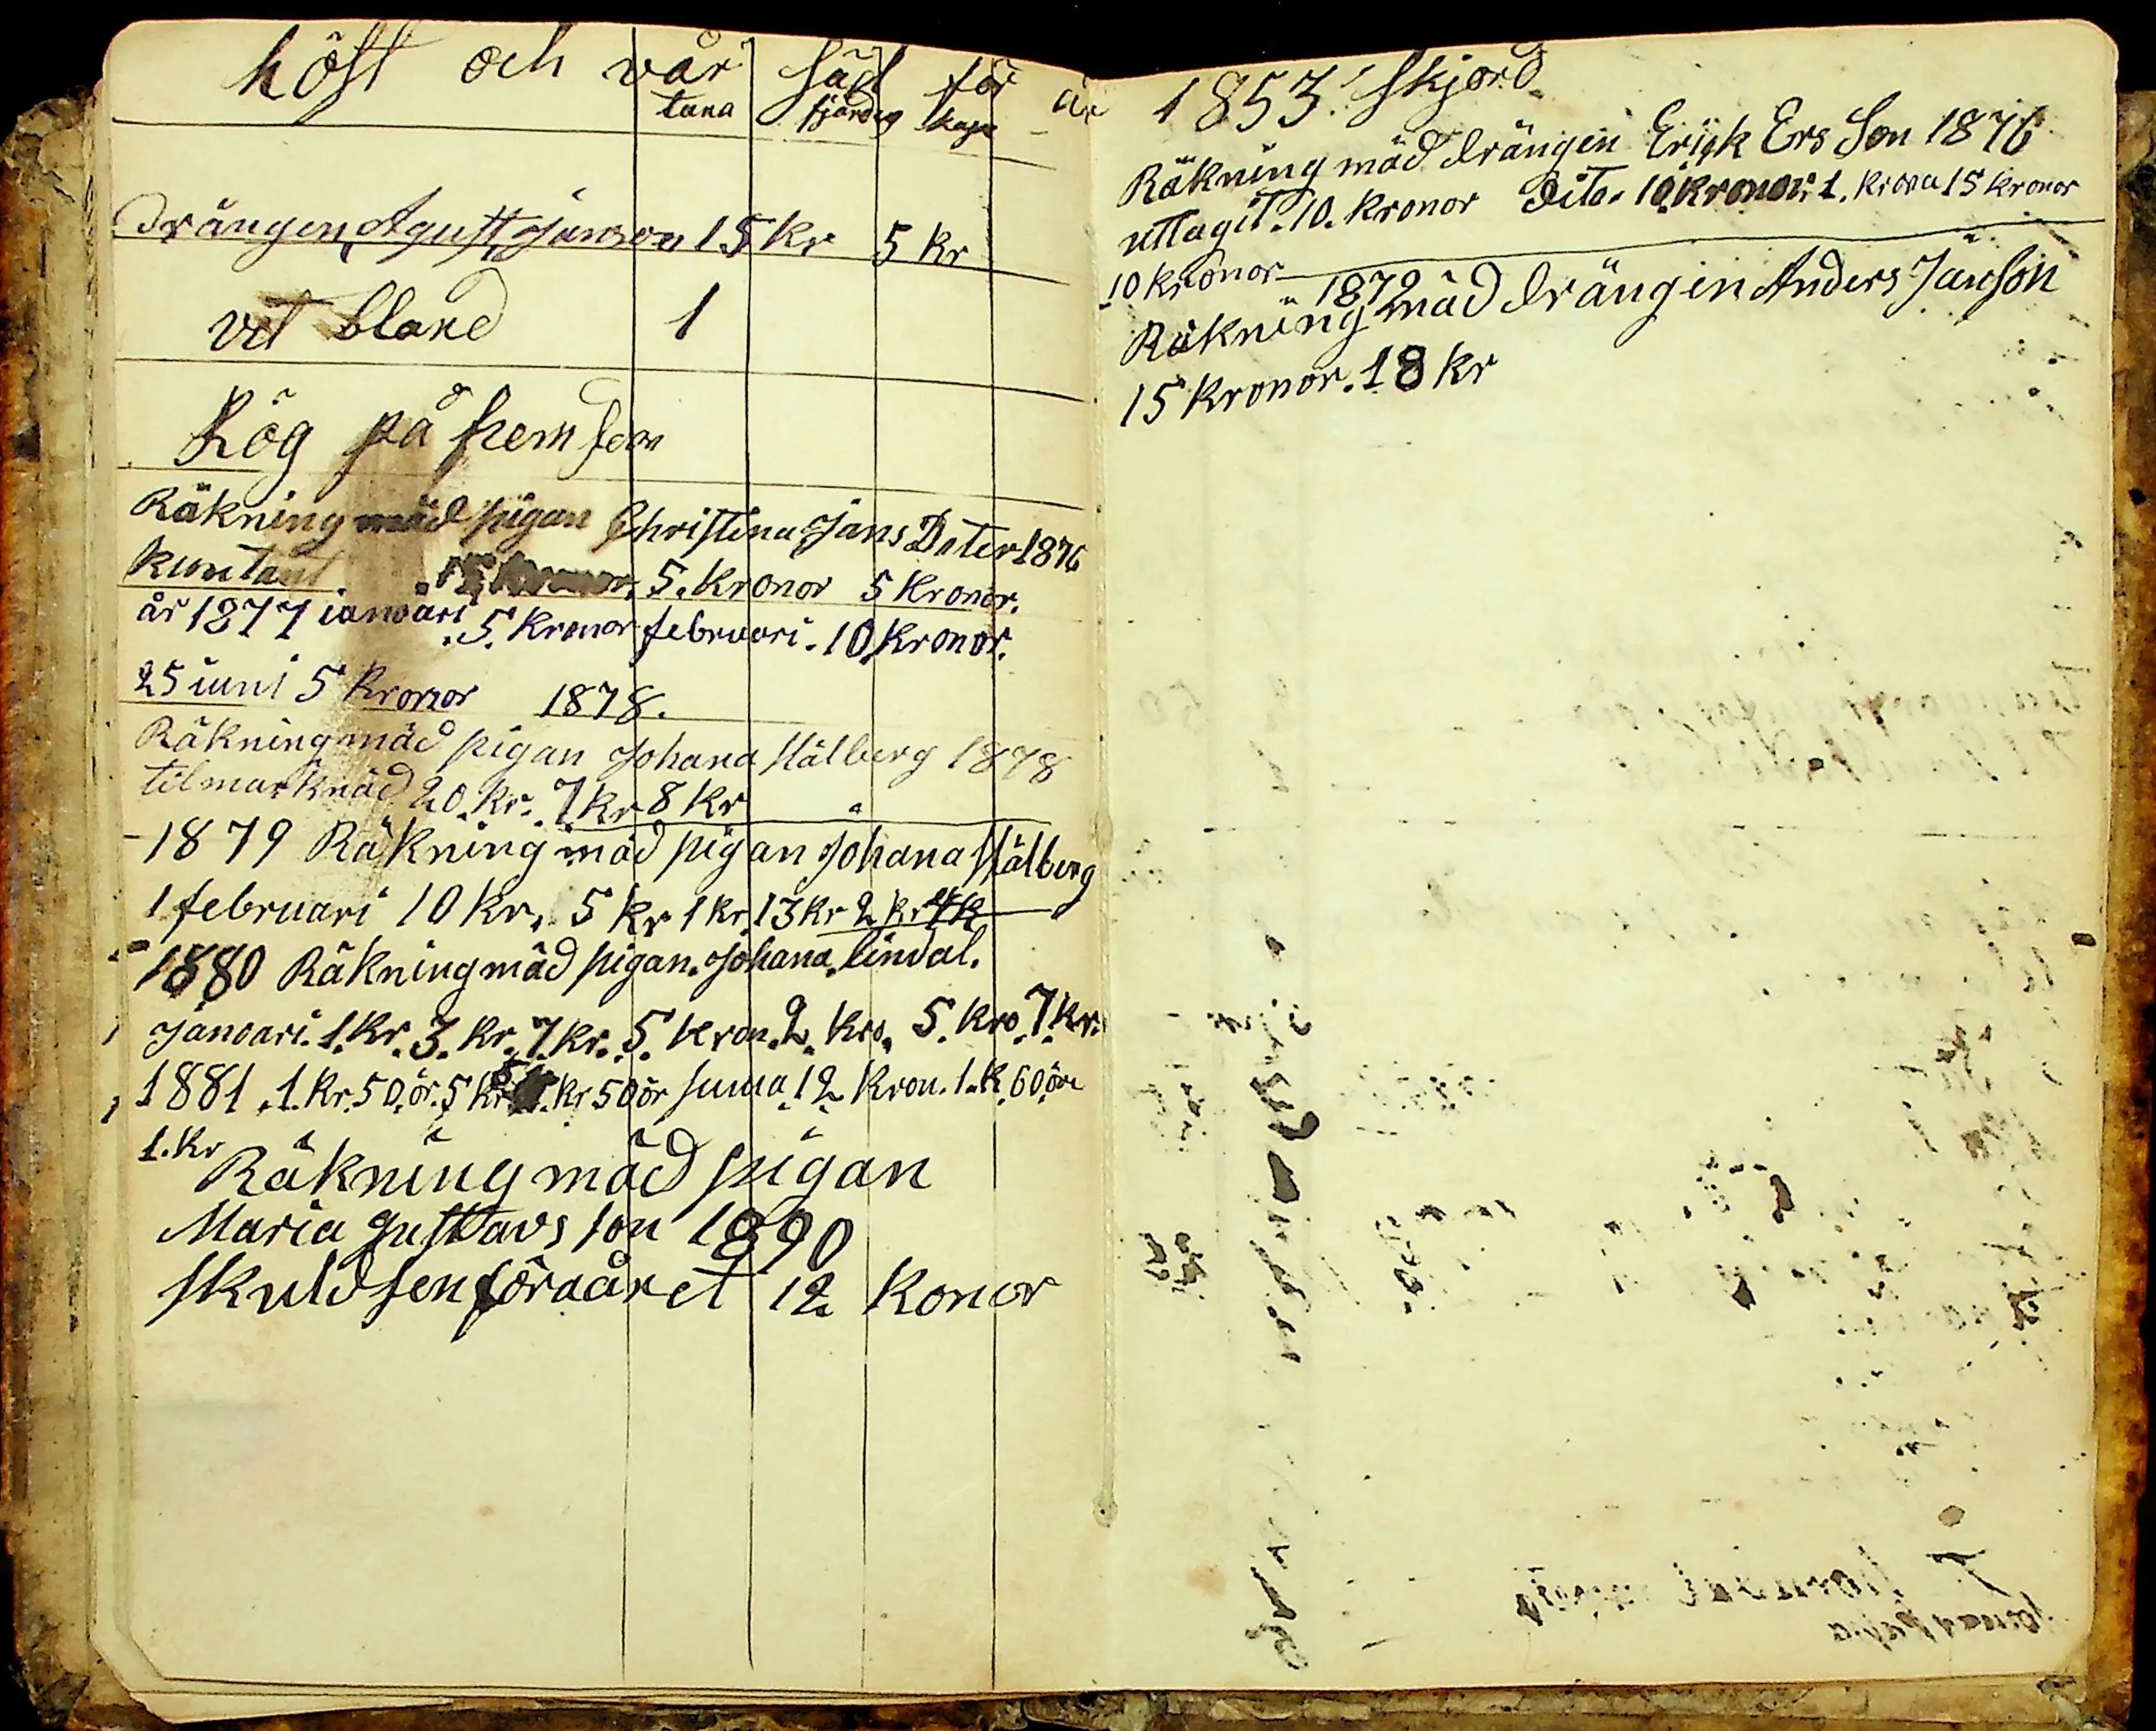 höst och vår säd för år
tuna fjärding kapa
drängen Agust Janson 15 kr 5 kr
vet bland 1
Rög på hem
Räkning mäd pigan Christina Jans Doter 1876
kuntant 5. kronor 5 kronor.
år 1877 ianuari 5 kronor februari. 10 kronor.
25 iuni 5 kronor 1878.
Räkning mäd pigan Johana Stålberg 1878
til marknäd 20. kr. 7 kr 8 kr
1879 Räkning mäd pigan Johana Stålberg
1 februari 10 kr. 5 kr 1 kr 13 kr 2 kr 4 k
1880 Räkning mäd pigan. Johana. lindal.
Januari. 1. kr. 3. kr. 7. kr. 5. kron. 2. kro. 5. kro. 7. kr.
1881. 1. kr. 50. ör. 5 kr kr 50 ör suma 12 kron. 1. k. 60 öre
1. kr
Räkning mäd pigan
Maria gustavs son 1890
skuld sen föraåret 12 konor
1853 skjord
Räkning mäd drängen Erick Ers Son 1876
uttagit. 10. kronor dito. 10. kronor. 1. krona 15 kronor
10 kronor
1879
Räkning mäd drängen Anders Janson
15 kronor. 18 kr